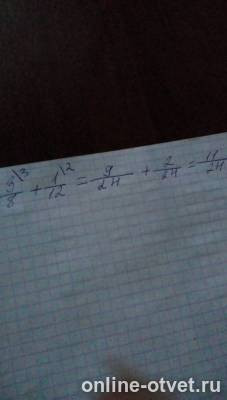 3\3/8 + 1\2/12 = 9/24 + 2/24 = 11/24
online-otvet.ru